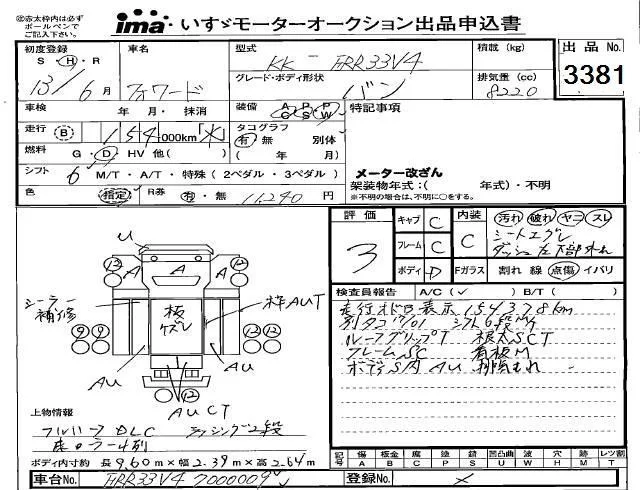 ◎赤太枠内は必ず
ボールペンで
ご記入下さい。
ima いすゞモーターオークション出品申込書
初度登録 車名 型式 積載 (kg) 出品 No.
S・H・R KK - FRR33V4
13/6月 フォワード グレード・ボディ形状 バン 排気量 (cc) 8220 3381
車検 年 月・抹消 装備 A C P S P W 特記事項
走行 B 154,000km「水」 タコグラフ 有 無 別体
燃料 G・D・HV 他( ) ( 年 月)
シフト 6 M/T・A/T・特殊 (2ペダル・3ペダル) メーター改ざん
架装物年式:( 年式)・不明
※不明の場合は、不明に○をする。
色 指定 R券 有・無 11,240 円
評価 3 キャブ C 内装 C 汚れ 破れ ヤニ スレ
フレーム C シートエグレ
ダッシュ左下部外れ
ボディ D Fガラス 割れ 線 点傷 イバリ
検査員報告 A/C(✓) B/T( )
走行オドロ表示 154378km
別タコ 17/01 シフト6段M/T
ルーフグリップT 根太SCT
フレームSC 看板M
ボディS内AU 排気もれ
U
13 A A A 12
シーラー
補修
板
ズレ
枠AUT
9 9 12 12
AU AU
12
AUCT
上物情報
フルハーフ DLC ラッシング2段
床ローラー4列
ボディ内寸約 長 9.60m×幅 2.39m×高 2.64m
記号 傷 A 板金 B 腐 C 塗 P 錆 S 凹凸曲 U 波 W 穴 H 跡 M レツ割 T
車台No. FRR33V4 7000009 登録No. ×